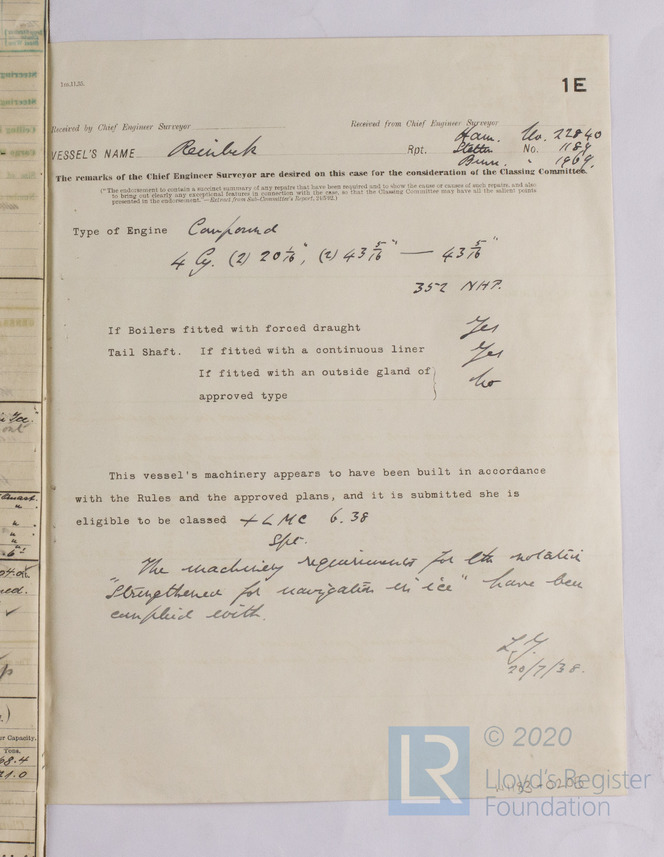 1m.11.35.
1E
Received by Chief Engineer Surveyor
Received from Chief Engineer Surveyor
Ham. No. 22840
VESSEL'S NAME Reinbek
Rpt. Stettn No. 1189
" 1969.
The remarks of the Chief Engineer Surveyor are desired on this case for the consideration of the Classing Committee.
(*The endorsement to contain a succinct summary of any repairs that have been required and to show the cause or causes of such repairs, and also
to bring out clearly any exceptional features in connection with the case, so that the Classing Committee may have all the salient points
presented in the endorsement."—Extract from Sub-Committee's Report, 24/5/92.)
Type of Engine Compound
4 Cy. (2) 20 1/16", (2) 43 5/16" — 43 5/16"
352 NHP.
If Boilers fitted with forced draught Yes
Tail Shaft. If fitted with a continuous liner Yes
If fitted with an outside gland of
approved type } No
This vessel's machinery appears to have been built in accordance
with the Rules and the approved plans, and it is submitted she is
eligible to be classed + LMC 6.38
Spt.
The machinery requirements for the notation
"Strengthened for navigation in ice" have been
complied with.
20/7/38.
LR
© 2020
Lloyd's Register
Foundation
er Capacity.
Tons.
68.4
21.0